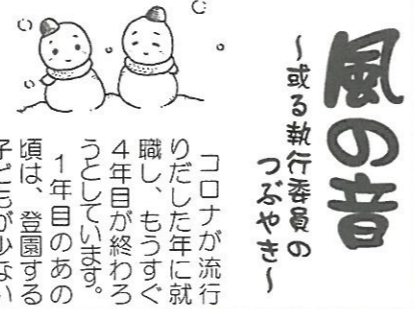 風の音
～或る執行委員の
つぶやき～
コロナが流行
りだした年に就
職し、もうすぐ
４年目が終わろ
うとしています。
１年目のあの
頃は、登園する
子どもが少ない